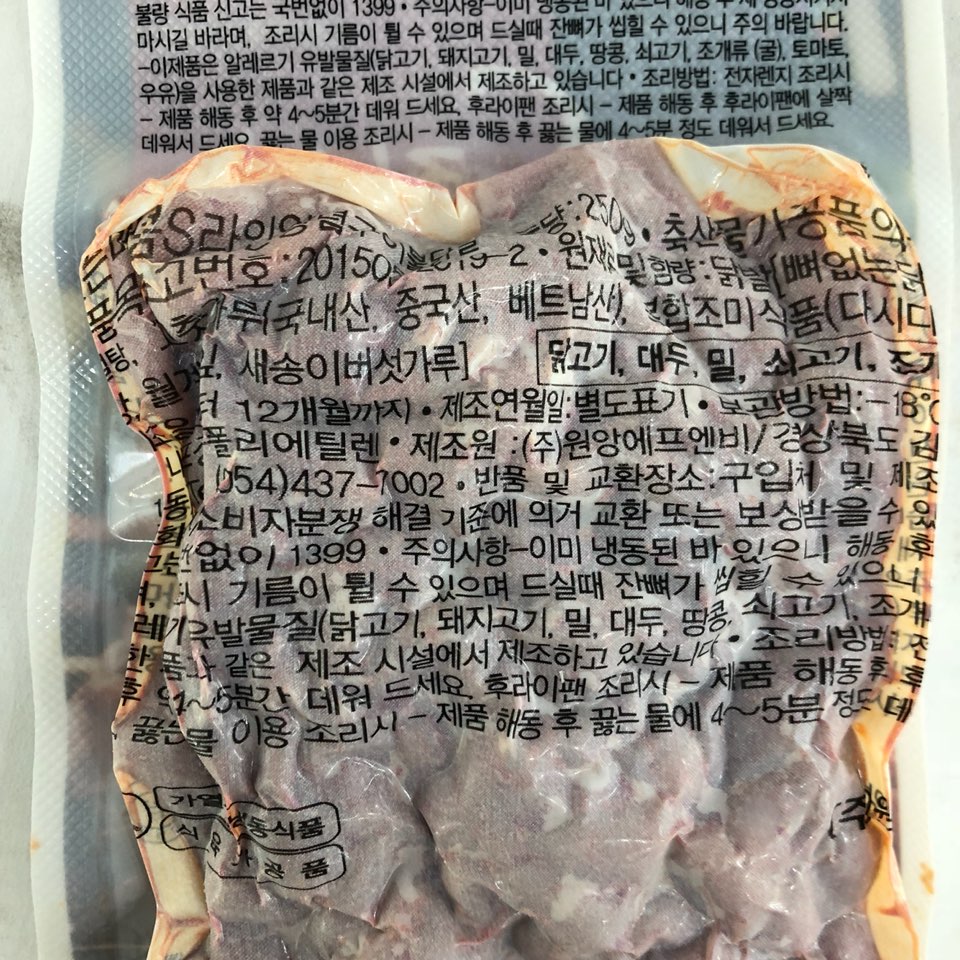 불량 식품 신고는 국번없이 1399 • 주의사항-이미 냉동된 바 있으니 해동 후
마시길 바라며, 조리시 기름이 튈 수 있으며 드실때 잔뼈가 씹힐 수 있으니 주의 바랍니다.
-이제품은 알레르기 유발물질(닭고기, 돼지고기, 밀, 대두, 땅콩, 쇠고기, 조개류(굴), 토마토,
우유)을 사용한 제품과 같은 제조 시설에서 제조하고 있습니다 • 조리방법: 전자렌지 조리시
- 제품 해동 후 약 4~5분간 데워 드세요, 후라이팬 조리시 - 제품 해동 후 후라이팬에 살짝
데워서 드세요, 끓는 물 이용 조리시 - 제품 해동 후 끓는 물에 4~5분 정도 데워서 드세요.
250g • 축산물가공품의
고번호 : 2015 -2 • 원재료 및 함량 : 닭발[뼈없는닭
(국내산, 중국산, 베트남산), 복합조미식품(다시다
새송이버섯가루] 닭고기, 대두, 밀, 쇠고기, 조개
12개월까지 • 제조연월일:별도표기 • 보관방법:-18℃
폴리에틸렌 • 제조원 :(주)원앙에프엔비/ 경상북도 김
(054)437-7002 • 반품 및 교환장소:구입처 및 제조
소비자분쟁 해결 기준에 의거 교환 또는 보상받을 수 있
없이 1399 • 주의사항-이미 냉동된 바 있으니 해동 후
시 기름이 튈 수 있으며 드실때 잔뼈가 씹힐 수 있으니
유발물질(닭고기, 돼지고기, 밀, 대두, 땅콩, 쇠고기, 조개
제품과 같은 제조 시설에서 제조하고 있습니다 • 조리방법: 전
약 4~5분간 데워 드세요, 후라이팬 조리시 - 제품 해동 후 후
끓는 물 이용 조리시 - 제품 해동 후 끓는 물에 4~5분 정도 데
가열 냉동식품
식 가공품